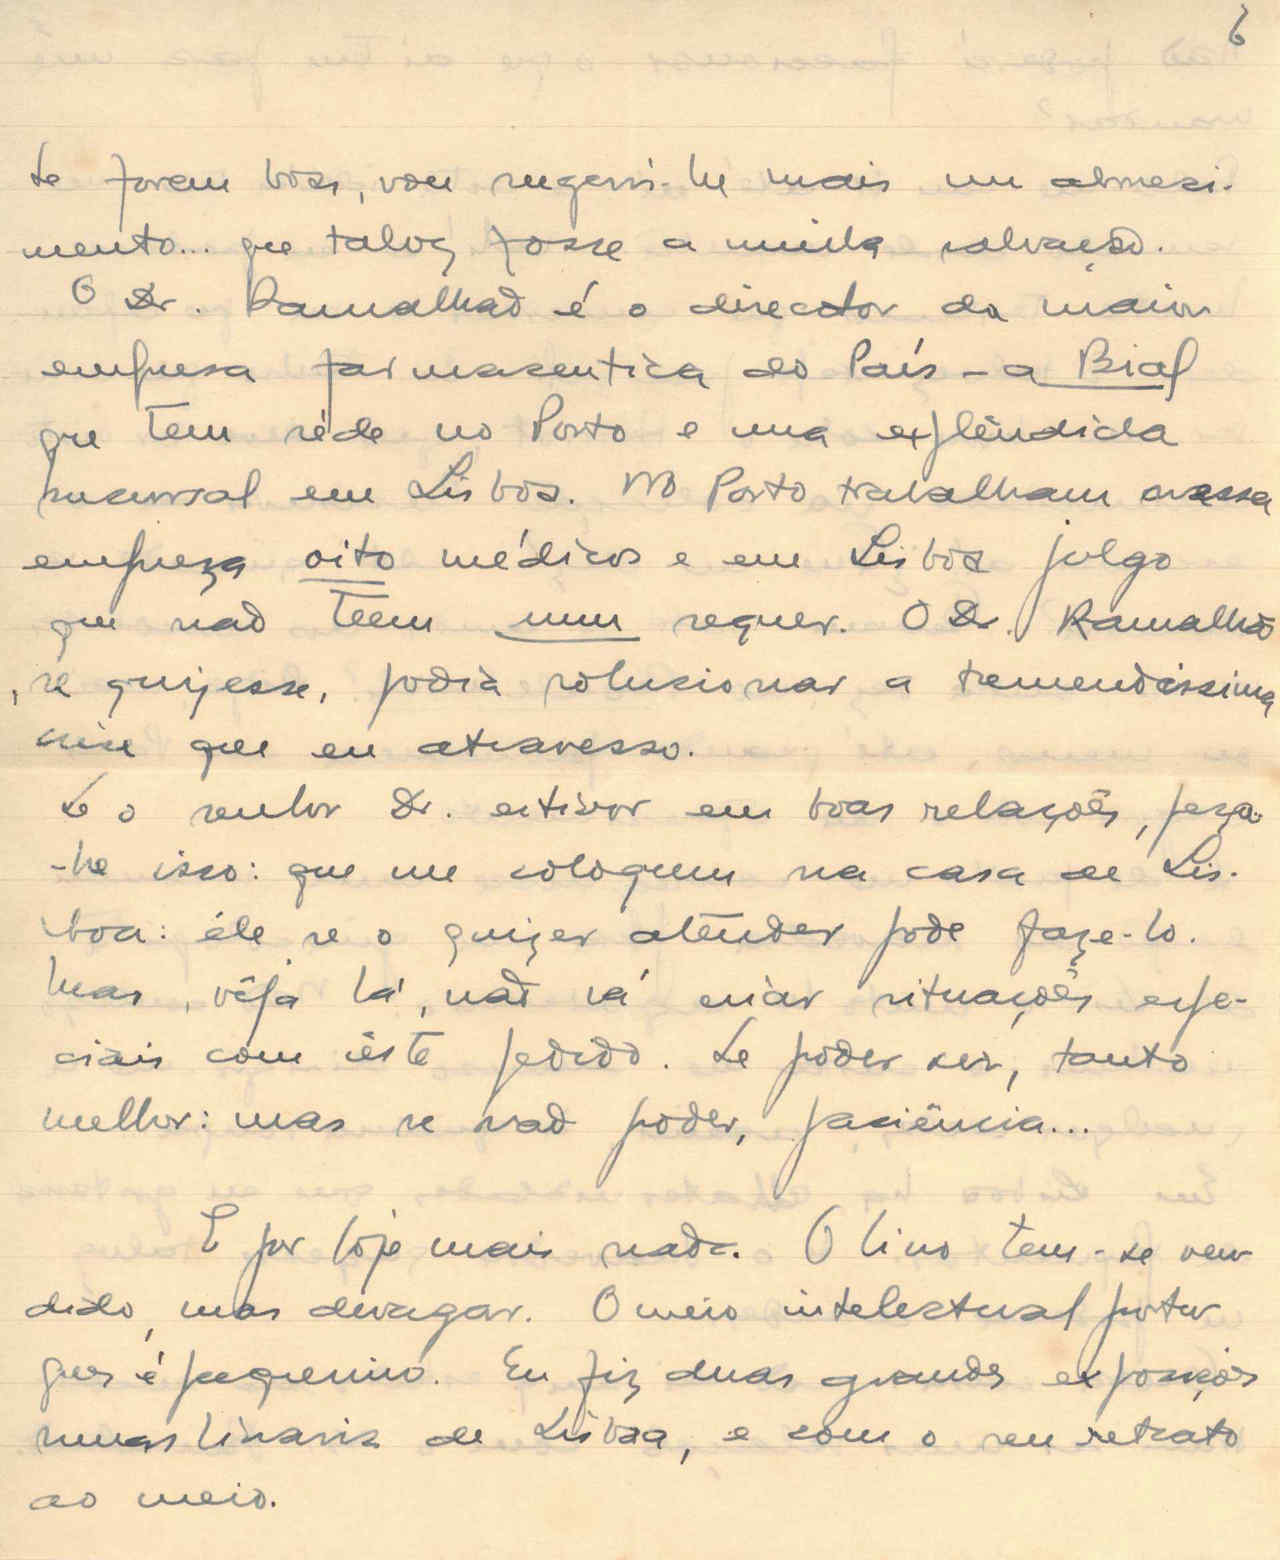 6
Se forem boas, vou sugerir-lhe mais um
mento... que talvez fosse a minha salvação.
O Dr. Ramalhão é o director da maior
empresa farmaceutica do País - a Bial
que tem séde no Porto e uma explêndida
sucursal em Lisboa. No Porto trabalham nessa
empreza oito médicos e em Lisboa julgo
que não teem num sequer. O Dr. Ramalhão
, se quizesse, podia solucionar a tremendissima
crise que eu atravesso.
Se o senhor Dr. estiver em boas relações, peça-
-lhe isso: que me coloquem na casa de Lis-
boa: êle se o quizer atender pode faze-lo.
Mas, vêja lá, não vá criar situações espe-
ciais com êste pedido. Se poder ser, tanto
melhor: mas se não poder, paciência...
E por hoje mais nada. O livro tem-se ven
dido, mas devagar. O meio intelectual portu
gues é pequenino. Eu fiz duas grandes exposições
numas livrarias de Lisboa, e com o seu retrato
ao meio.